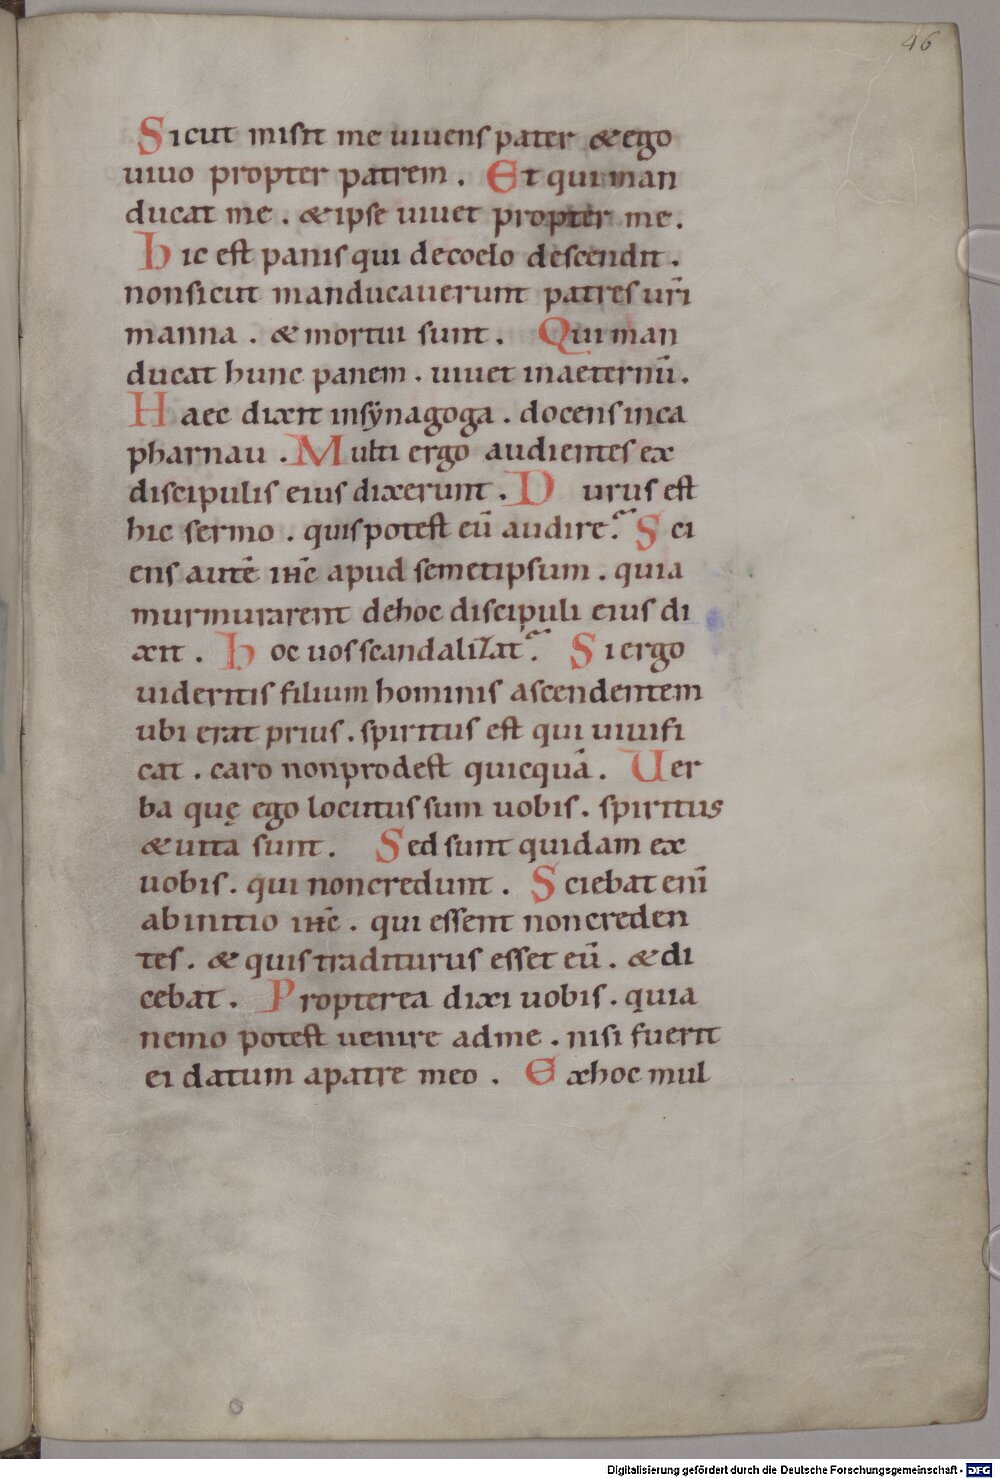 46
Sicut misit me uiuens pater & ego
uiuo propter patrem . Et qui man
ducat me . & ipse uiuet propter me .
hic est panis qui de coelo descendit .
non sicut manducauerunt patres ur̄i
manna . & mortui sunt . Qui man
ducat hunc panem . uiuet in aeternū .
Haec dixit in sẏnagoga . docens in ca
pharnau . Multi ergo audientes ex
discipulis eius dixerunt . Durus est
hic sermo . quis potest eū audire? Sci
ens autē ihc̄ apud semetipsum . quia
murmurarent de hoc discipuli eius di
xit . hoc uos scandalizat? Si ergo
uideritis filium hominis ascendentem
ubi erat prius . spiritus est qui uiuifi
cat . caro non prodest quicquā . Uer
ba quę ego locutus sum uobis . spiritus
& uita sunt . Sed sunt quidam ex
uobis . qui non credunt . Sciebat eni̅
ab initio ihc̄ . qui essent non creden
tes . & quis traditurus esset eū . & di
cebat . Propterea dixi uobis . quia
nemo potest uenire ad me . nisi fuerit
ei datum a patre meo . Ex hoc mul
Digitalisierung gefördert durch die Deutsche Forschungsgemeinschaft - DFG